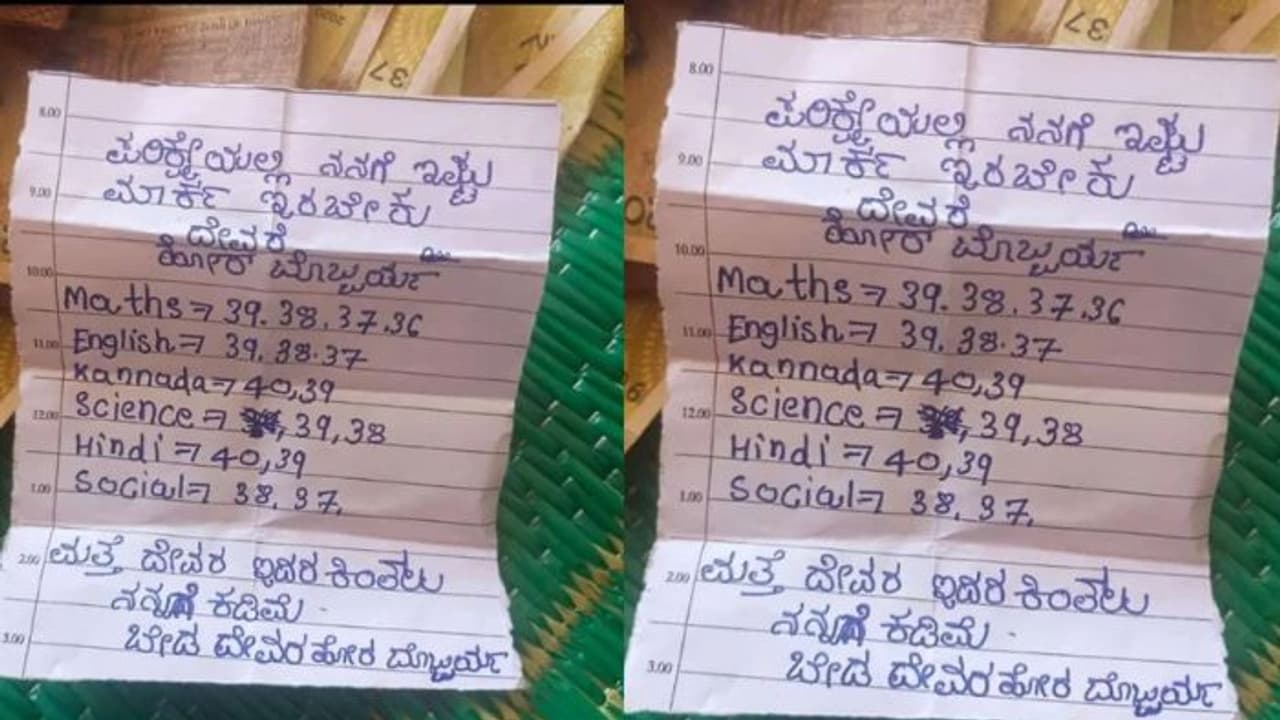 37
8.00
ಪರಿಕ್ಷೇಯಲ್ಲಿ ನನಗೆ ಇಷ್ಟು
9.00 ಮಾರ್ಕ್ ಇರಬೇಕು
ದೇವರೆ
10.00 ಹೋರ್ ಬೊಬ್ಬುರ್ಯ
Maths=> 39. 38. 37.36
11.00 English=> 39. 38.37
Kannada=> 40,39
12.00 Science=> , 39,38
Hindi => 40,39
1.00 Social=> 38. 37.
2.00 ಮತ್ತೆ ದೇವರ ಇದರಕಿಂತಲು
ನನ್ನಗೆ ಕಡಿಮೆ .
3.00 ಬೇಡ ದೇವರ ಹೋರ ಬೊಬ್ಬುರ್ಯ
37
8.00
ಪರಿಕ್ಷೇಯಲ್ಲಿ ನನಗೆ ಇಷ್ಟು
9.00 ಮಾರ್ಕ್ ಇರಬೇಕು
ದೇವರೆ
10.00 ಹೋರ್ ಬೊಬ್ಬುರ್ಯ
Maths=> 39. 38. 37.36
11.00 English=> 39. 38.37
Kannada=> 40,39
12.00 Science => , 39,38
Hindi => 40,39
1.00 Social=> 38. 37.
2.00 ಮತ್ತೆ ದೇವರ ಇದರಕಿಂತಲು
ನನ್ನಗೆ ಕಡಿಮೆ .
3.00 ಬೇಡ ದೇವರ ಹೋರ ಬೊಬ್ಬುರ್ಯ